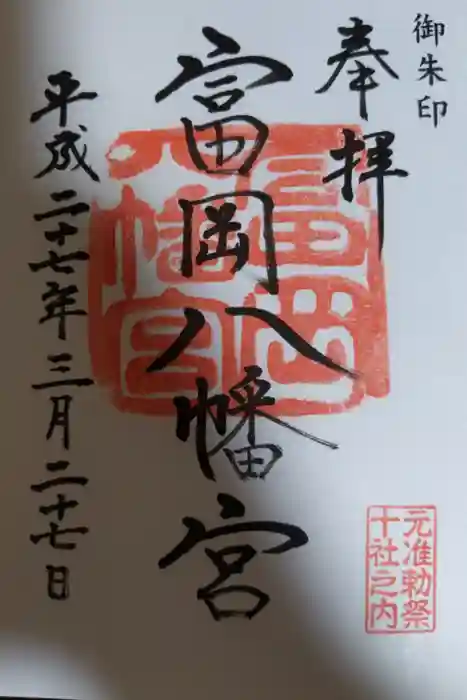 御朱印
奉拝
富岡八幡宮
平成二十七年三月二十七日
富岡
八幡宮
元准勅祭
十社之内